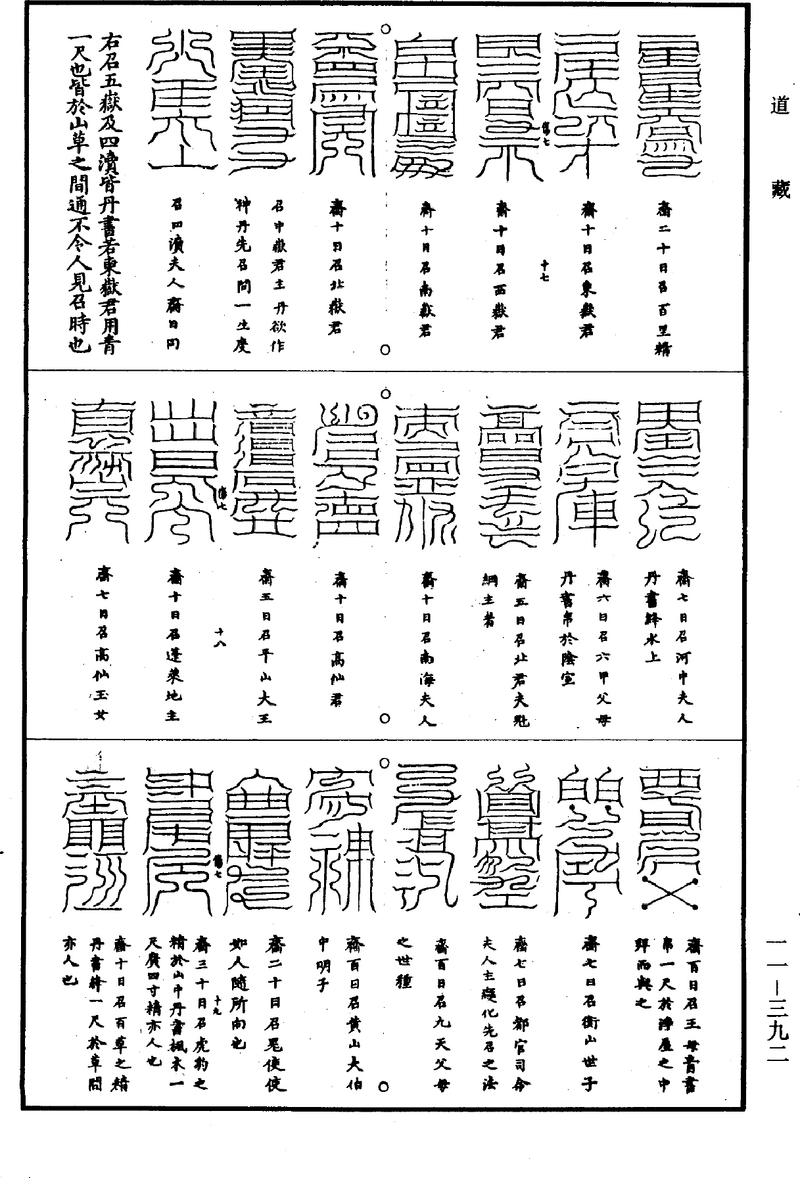 道藏
齋二十日召百里精
齋十日召東嶽君
傷七
十七
齋十日召西嶽君
齋十日召南嶽君
齋十日召北嶽君
召中嶽君主丹欲作
神丹先召問一生度
召四瀆夫人齋日同
右召五嶽及四瀆皆丹書若東嶽君用青
一尺也皆於山草之間通不令人見召時也
齋七日召河中夫人
丹書絳水上
齋六日召六甲父母
丹書帛於陰室
齋五日召北君夫
綱主者
齋十日召南海夫人
齋十日召高仙君
齋五日召平山大王
十八
傷七
齋十日召蓬萊地主
齋七日召高仙玉女
齋百日召王母青書
帛一尺於淨屋之中
與之
齋七日召衡山世子
齋七日召都官司命
夫人主變化先召之法
齋百日召九天父母
之世種
齋百日召黃山大伯
中明子
齋二十日召鬼使使
如人隨所向也
傷七
十九
齋三十日召虎豹之
精於山中丹書楓木一
尺廣四寸精亦人也
齋十日召百草之精
丹書絳一尺於草間
亦人也
一一—三九二